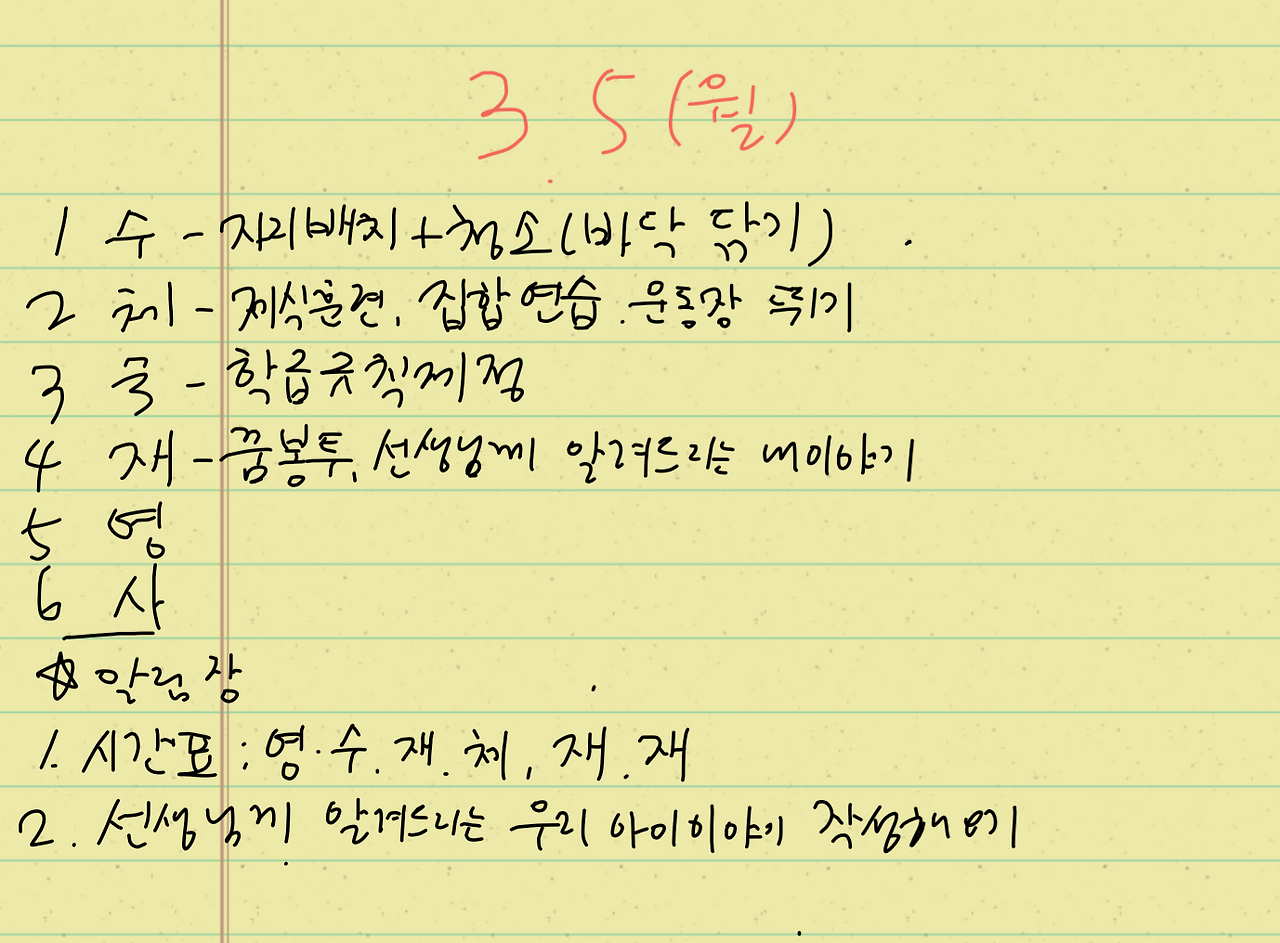 3. 5 (월)
1 수 - 자리배치 + 청소(바닥 닦기)
2 체 - 제식훈련, 집합 연습. 운동장 뛰기
3 국 - 학급규칙제정
4 재 - 꿈봉투, 선생님께 알려드리는 내이야기
5 영
6 사
☆ 알림장
1. 시간표 : 영. 수. 재. 체, 재. 재
2. 선생님께 알려드리는 우리 아이이야기 작성해오기